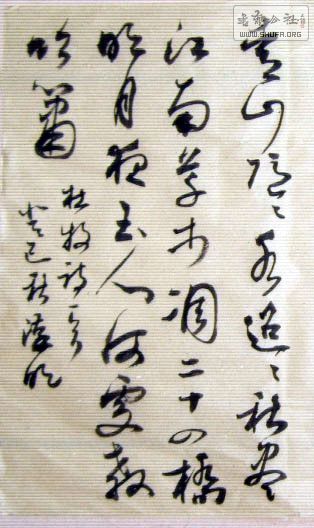 公社
WWW.SHUFA.ORG
青山隐〻水迢〻秋尽
江南草木凋二十四橋
明月夜玉人何處教
吹簫
杜牧诗一首
癸巳秋